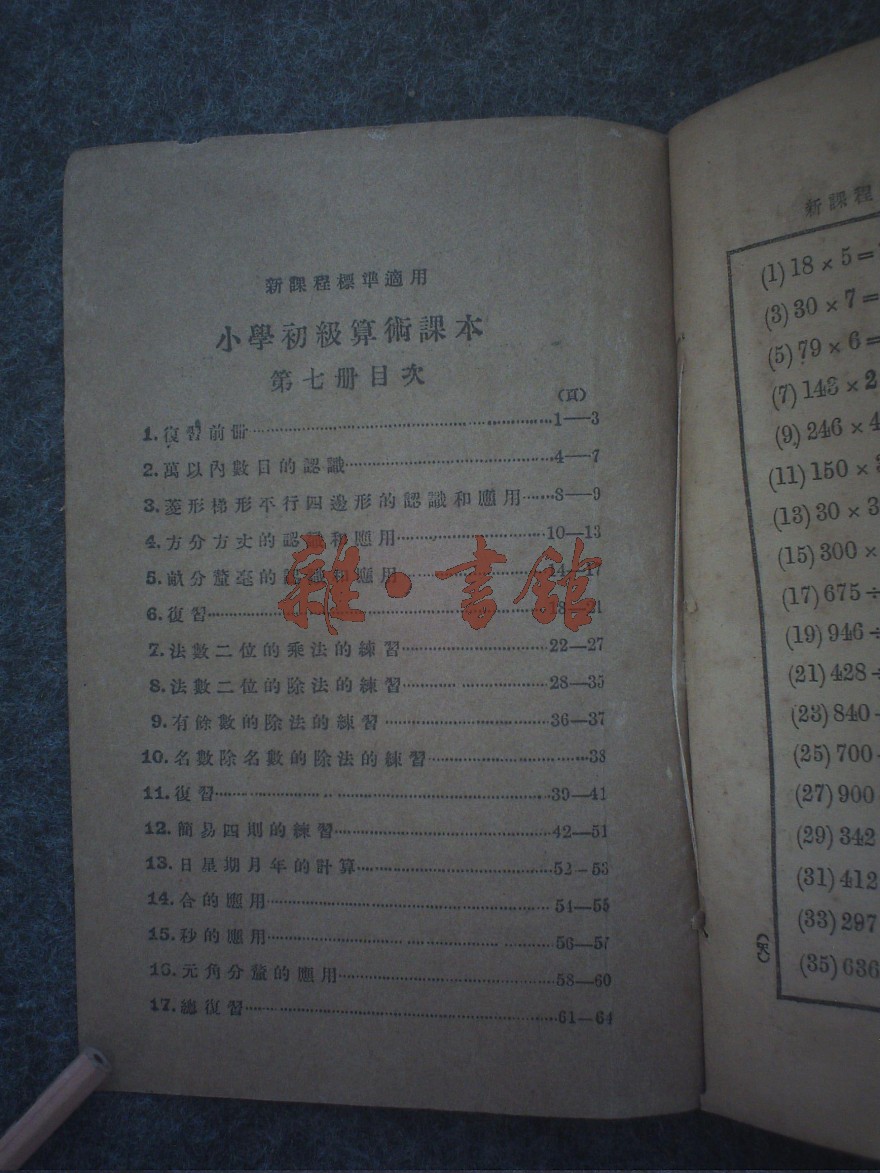 新課程標準適用
小學初級算術課本
第七冊目次
(頁)
1.復習前冊……1—3
2.萬以內數目的認識……4—7
3.菱形梯形平行四邊形的認識和應用……8—9
4.方分方丈的認識和應用……10—13
5.畝分釐毫的認識和應用……14—17
6.復習……18—21
7.法數二位的乘法的練習……22—27
8.法數二位的除法的練習……28—35
9.有餘數的除法的練習……36—37
10.名數除名數的除法的練習……38
11.復習……39—41
12.簡易四則的練習……42—51
13.日星期月年的計算……52—53
14.合的應用……54—55
15.秒的應用……56—57
16.元角分釐的應用……58—60
17.總復習……61—64
雜·書館
新課程
(1) 18 × 5 =
(3) 30 × 7 =
(5) 79 × 6 =
(7) 143 × 2
(9) 246 × 4
(11) 150 ×
(13) 30 × 3
(15) 300 ×
(17) 675 ÷
(19) 946 ÷
(21) 428 ÷
(23) 840
(25) 700
(27) 900
(29) 342
(31) 412
(33) 297
(35) 636